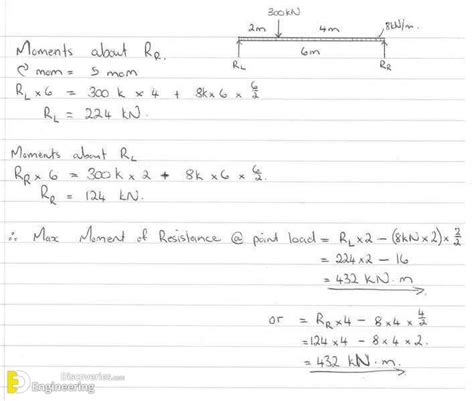 300kN
2m 4m 8kN/m.
6m
RL RR
Moments about RR.
↻ mom = ↺ mom
RL × 6 = 300 k × 4 + 8k × 6 × 6/2
RL = 224 kN.
Moments about RL
RR × 6 = 300k × 2 + 8k × 6 × 6/2.
RR = 124 kN.
∴ Max Moment of Resistance @ point load = RL × 2 − (8kN × 2) × 2/2
= 224 × 2 − 16
= 432 kN.m
or = RR × 4 − 8 × 4 × 4/2
= 124 × 4 − 8 × 4 × 2.
= 432 kN.m.
Discoveries.com
Engineering